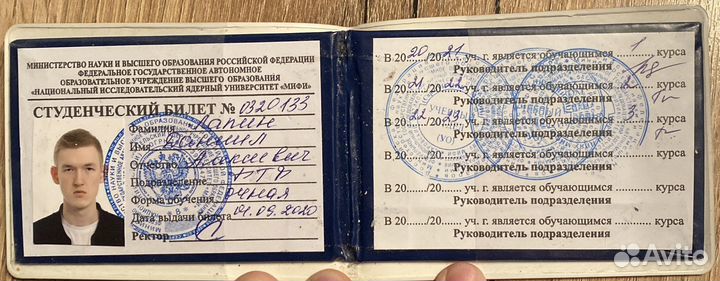 МИНИСТЕРСТВО НАУКИ И ВЫСШЕГО ОБРАЗОВАНИЯ РОССИЙСКОЙ ФЕДЕРАЦИИ
ФЕДЕРАЛЬНОЕ ГОСУДАРСТВЕННОЕ АВТОНОМНОЕ
ОБРАЗОВАТЕЛЬНОЕ УЧРЕЖДЕНИЕ ВЫСШЕГО ОБРАЗОВАНИЯ
«НАЦИОНАЛЬНЫЙ ИССЛЕДОВАТЕЛЬСКИЙ ЯДЕРНЫЙ УНИВЕРСИТЕТ «МИФИ»
СТУДЕНЧЕСКИЙ БИЛЕТ № 0320133
Фамилия Лапин
Имя Даниил
Отчество Алексеевич
Подразделение
Форма обучения очная
Дата выдачи билета 01.09.2020
Ректор
В 2020/2021 уч. г. является обучающимся 1 курса
Руководитель подразделения
В 2021/2022 уч. г. является обучающимся 2 курса
Руководитель подразделения
В 2022/2023 уч. г. является обучающимся 3 курса
Руководитель подразделения
В 20....../20...... уч. г. является обучающимся ............ курса
Руководитель подразделения
В 20....../20...... уч. г. является обучающимся ............ курса
Руководитель подразделения
В 20....../20...... уч. г. является обучающимся ............ курса
Руководитель подразделения
Avito